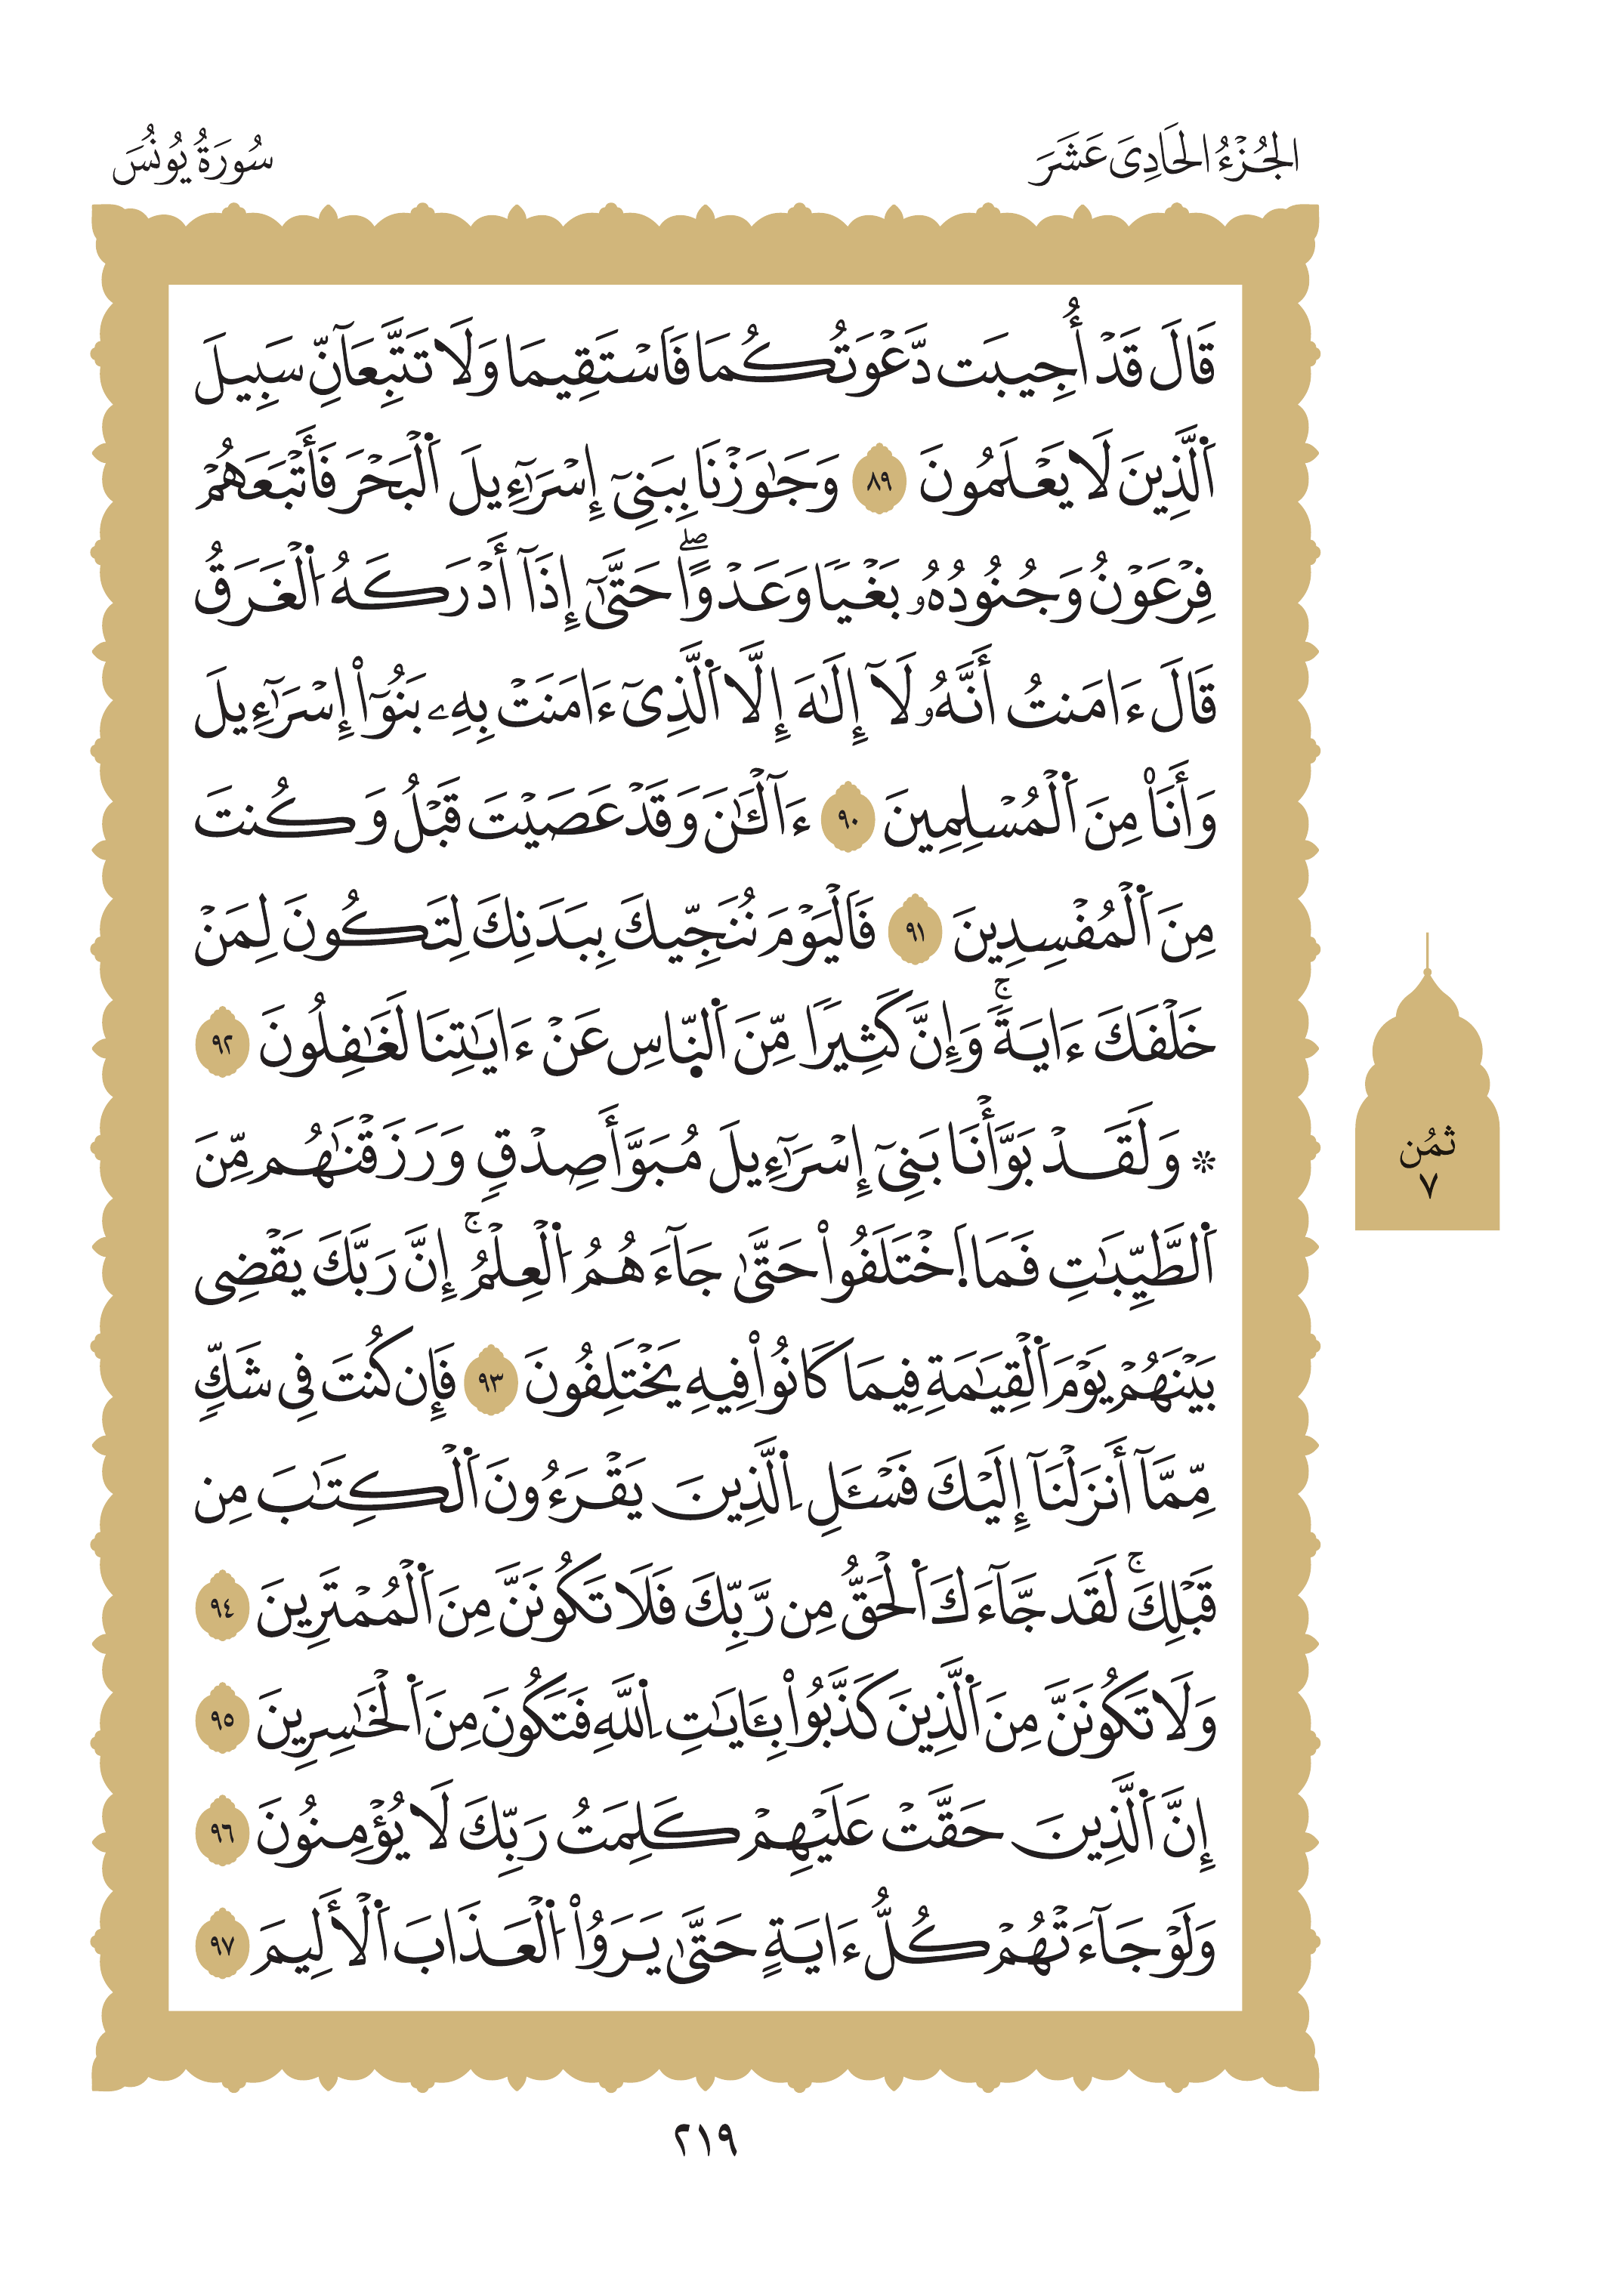 الجُزْءُ الحَادِىَ عَشَرَ
سُورَةُ يُونُسَ
قَالَ قَدۡ أُجِيبَت دَّعۡوَتُكُمَا فَٱسۡتَقِيمَا وَلَا تَتَّبِعَآنِّ سَبِيلَ
ٱلَّذِينَ لَا يَعۡلَمُونَ ٨٩ وَجَٰوَزۡنَا بِبَنِيٓ إِسۡرَٰٓءِيلَ ٱلۡبَحۡرَ فَأَتۡبَعَهُمۡ
فِرۡعَوۡنُ وَجُنُودُهُۥ بَغۡيٗا وَعَدۡوًاۖ حَتَّىٰٓ إِذَآ أَدۡرَكَهُ ٱلۡغَرَقُ
قَالَ ءَامَنتُ أَنَّهُۥ لَآ إِلَٰهَ إِلَّا ٱلَّذِيٓ ءَامَنَتۡ بِهِۦ بَنُوٓاْ إِسۡرَٰٓءِيلَ
وَأَنَا۠ مِنَ ٱلۡمُسۡلِمِينَ ٩٠ ءَآلۡـَٰٔنَ وَقَدۡ عَصَيۡتَ قَبۡلُ وَكُنتَ
مِنَ ٱلۡمُفۡسِدِينَ ٩١ فَٱلۡيَوۡمَ نُنَجِّيكَ بِبَدَنِكَ لِتَكُونَ لِمَنۡ
خَلۡفَكَ ءَايَةٗۚ وَإِنَّ كَثِيرٗا مِّنَ ٱلنَّاسِ عَنۡ ءَايَٰتِنَا لَغَٰفِلُونَ ٩٢
۞ وَلَقَدۡ بَوَّأۡنَا بَنِيٓ إِسۡرَٰٓءِيلَ مُبَوَّأَ صِدۡقٖ وَرَزَقۡنَٰهُم مِّنَ
ٱلطَّيِّبَٰتِ فَمَا ٱخۡتَلَفُواْ حَتَّىٰ جَآءَهُمُ ٱلۡعِلۡمُۚ إِنَّ رَبَّكَ يَقۡضِي
بَيۡنَهُمۡ يَوۡمَ ٱلۡقِيَٰمَةِ فِيمَا كَانُواْ فِيهِ يَخۡتَلِفُونَ ٩٣ فَإِن كُنتَ فِي شَكّٖ
مِّمَّآ أَنزَلۡنَآ إِلَيۡكَ فَسۡـَٔلِ ٱلَّذِينَ يَقۡرَءُونَ ٱلۡكِتَٰبَ مِن
قَبۡلِكَۚ لَقَد جَّآءَكَ ٱلۡحَقُّ مِن رَّبِّكَ فَلَا تَكُونَنَّ مِنَ ٱلۡمُمۡتَرِينَ ٩٤
وَلَا تَكُونَنَّ مِنَ ٱلَّذِينَ كَذَّبُواْ بِـَٔايَٰتِ ٱللَّهِ فَتَكُونَ مِنَ ٱلۡخَٰسِرِينَ ٩٥
إِنَّ ٱلَّذِينَ حَقَّتۡ عَلَيۡهِمۡ كَلِمَتُ رَبِّكَ لَا يُؤۡمِنُونَ ٩٦
وَلَوۡ جَآءَتۡهُمۡ كُلُّ ءَايَةٍ حَتَّىٰ يَرَوُاْ ٱلۡعَذَابَ ٱلۡأَلِيمَ ٩٧
ثمُن
٧
٢١٩